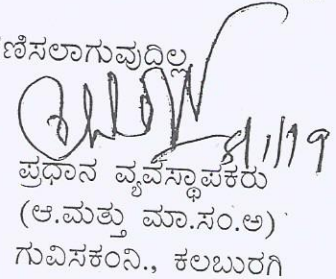 ಣಿಸಲಾಗುವುದಿಲ್ಲ
8/1/19
ಪ್ರಧಾನ ವ್ಯವಸ್ಥಾಪಕರು
(ಆ.ಮತ್ತು ಮಾ.ಸಂ.ಅ)
ಗುವಿಸಕಂನಿ., ಕಲಬುರಗಿ